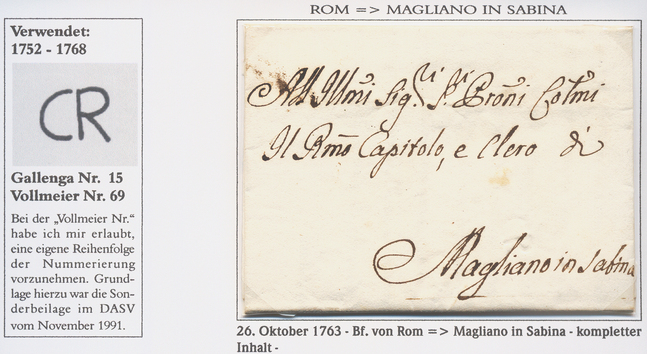 ROM => MAGLIANO IN SABINA
Verwendet:
1752 - 1768
CR
Gallenga Nr. 15
Vollmeier Nr. 69
Bei der „Vollmeier Nr.“
habe ich mir erlaubt,
eine eigene Reihenfolge
der Nummerierung
vorzunehmen. Grund-
lage hierzu war die Son-
derbeilage im DASV
vom November 1991.
All Illmi Sig.ri P.ri Proñi Colmi
Il Rmo Capitolo, e Clero di
Magliano in Sabina
26. Oktober 1763 - Bf. von Rom => Magliano in Sabina - kompletter
Inhalt -